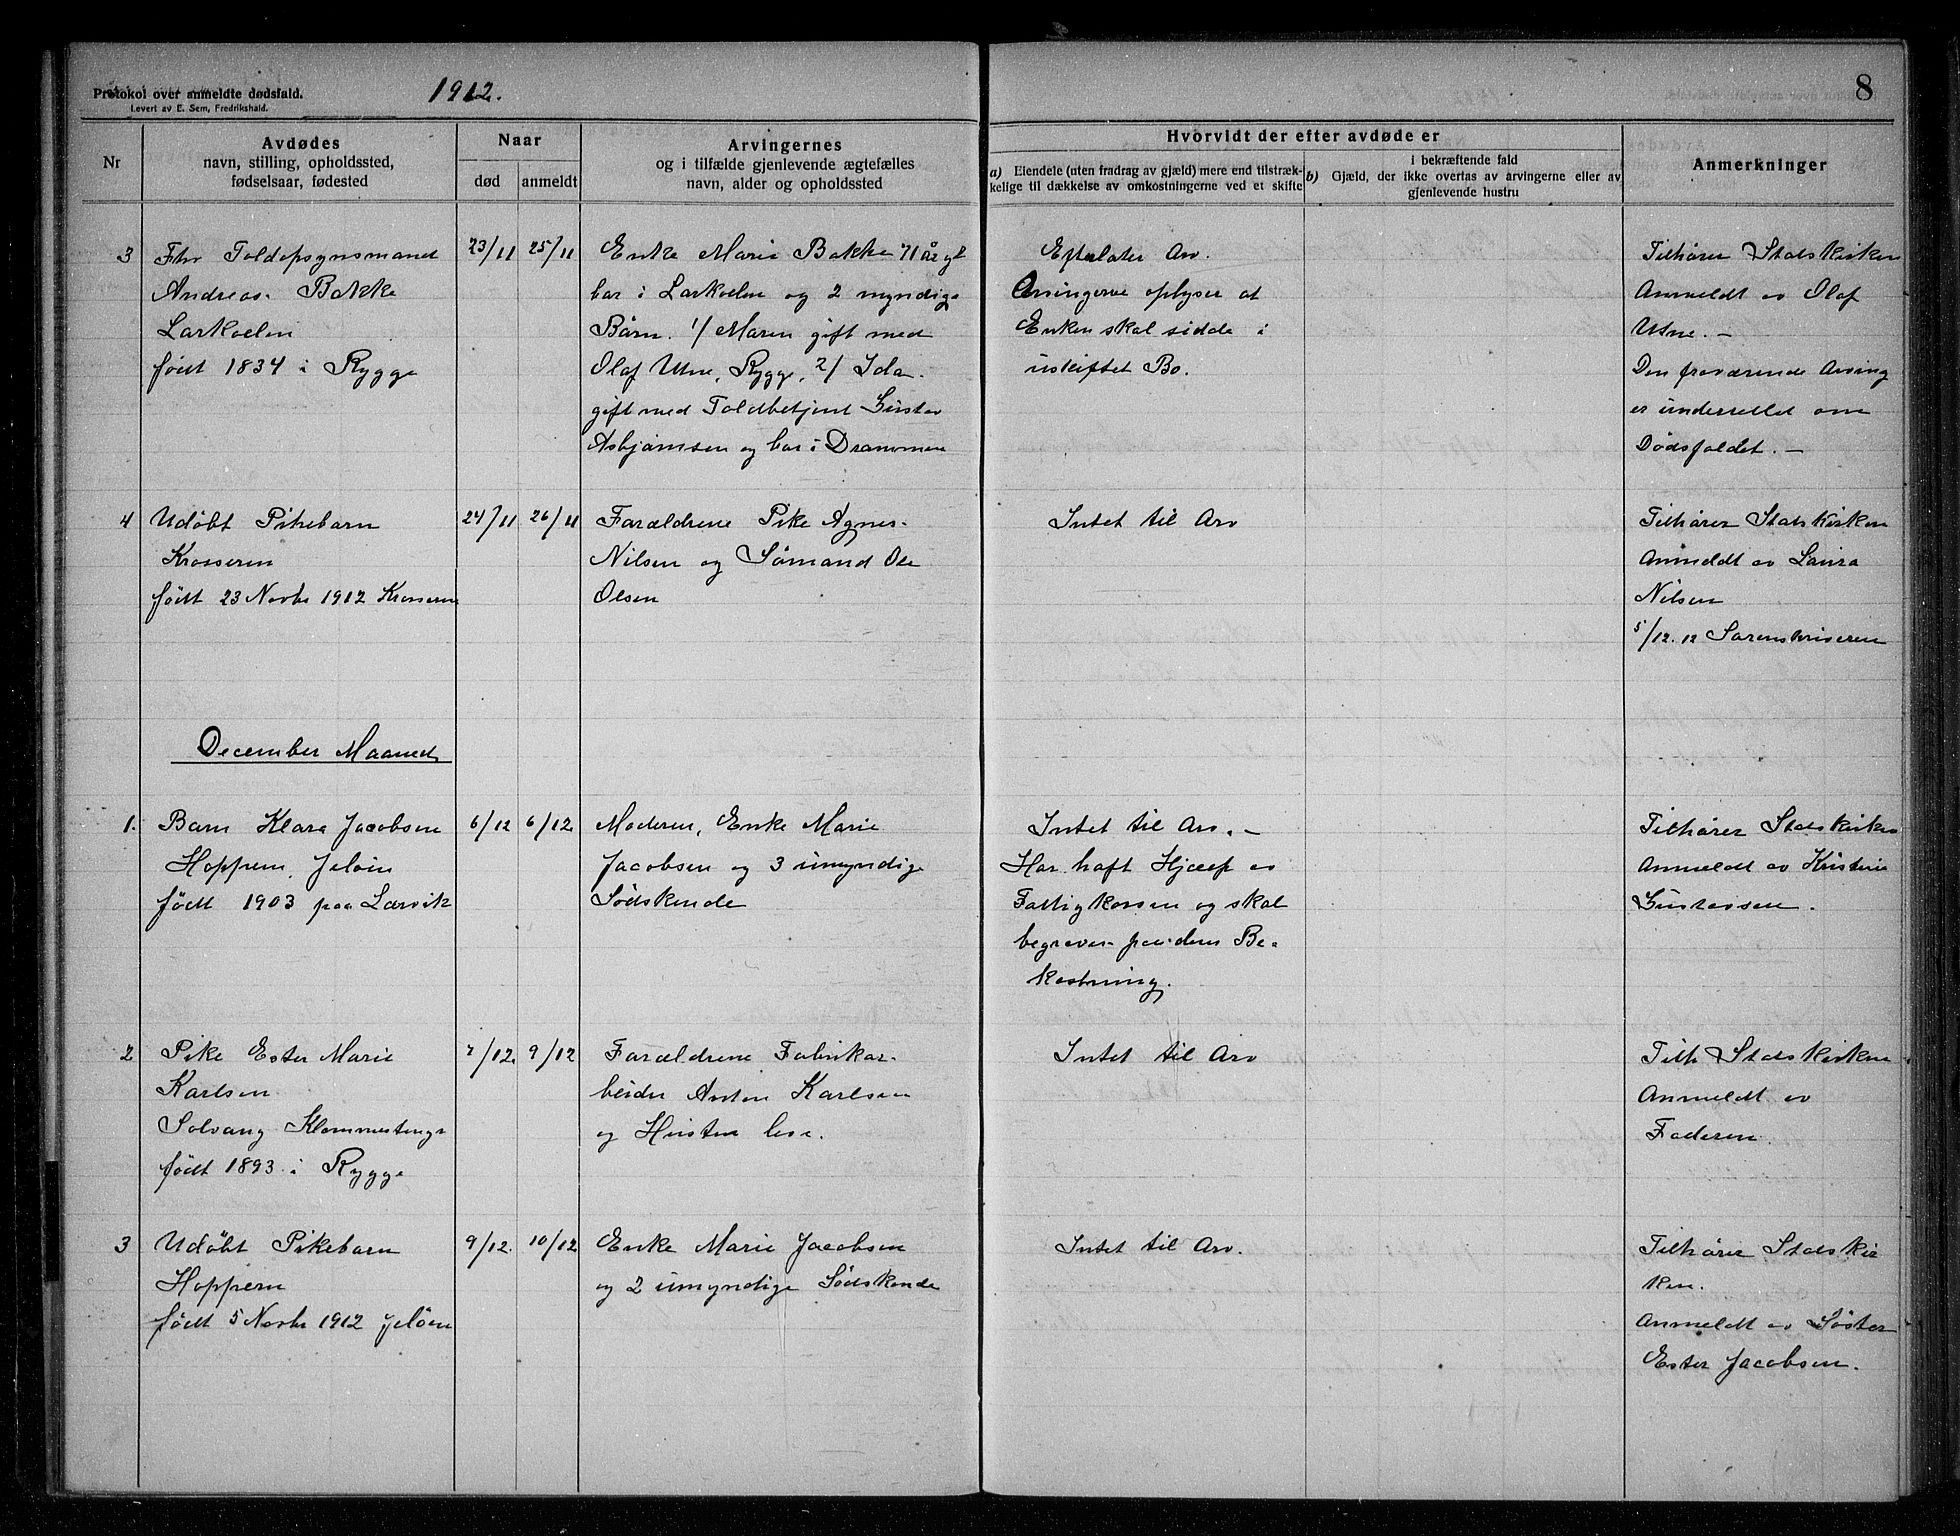 Protokol over anmeldte dødsfald.
Levert av E. Sem, Fredrikshald.
1912.
8
Nr
Avdødes
navn, stilling, opholdssted,
fødselsaar, fødested
Naar
død
anmeldt
Arvingernes
og i tilfælde gjenlevende ægtefælles
navn, alder og opholdssted
Hvorvidt der efter avdøde er
a) Eiendele (uten fradrag av gjæld) mere end tilstræk-
kelige til dækkelse av omkostningerne ved et skifte
i bekræftende fald
b) Gjæld, der ikke overtas av arvingerne eller av
gjenlevende hustru
Anmerkninger
3
Fhv Toldopsynsmand
Andreas Bakke
Larkollen
født 1834 i Rygge
23/11
25/11
Enke Marie Bakke 71 år gl
bor i Larkollen og 2 myndige
Børn. 1/ Maren gift med
Olaf Utne, Rygge, 2/ Ida
gift med Toldbetjent Gustav
Asbjørnsen og bor i Drammen
Efterlater Arv.
Arvingerne oplyser at
Enken skal sidde i
uskiftet Bo.
Tilhører Statskirken
Anmeldt av Olaf
Utne. —
Den fraværende Arving
er underrettet om
Dødsfaldet. —
4
Udøbt Pikebarn
Krosseren
født 23 Novbr 1912 Krosseren
24/11
26/11
Forældrene Pike Agnes
Nilsen og Sømand Ole
Olsen
Intet til Arv
Tilhører Statskirken
Anmeldt av Laura
Nilsen
5/12.12 Sorenskriveren
December Maaned
1.
Barn Klara Jacobsen
Hoppern, Jeløen
født 1903 paa Larvik
6/12
6/12.
Moderen, Enke Marie
Jacobsen og 3 umyndige
Sødskende
Intet til Arv. —
Har haft Hjælp av
Fattigkassen og skal
begraves paa dens Be-
kostning.
Tilhører Statskirken
Anmeldt av Kristine
Gustavsen.
2
Pike Ester Marie
Karlsen
Solvang Klommestengs
født 1893 i Rygge
7/12.
9/12
Forældrene Fabrikar-
beider Anton Karlsen
og Hustru
Intet til Arv
Tilh Statskirken
Anmeldt av
Faderen.
3
Udøbt Pikebarn
Hoppern
født 5 Novbr 1912 Jeløen
9/12.
10/12
Enke Marie Jacobsen
og 2 umyndige Sødskende
Intet til Arv.
Tilhører Statskir
ken.
Anmeldt av Søster
Ester Jacobsen.